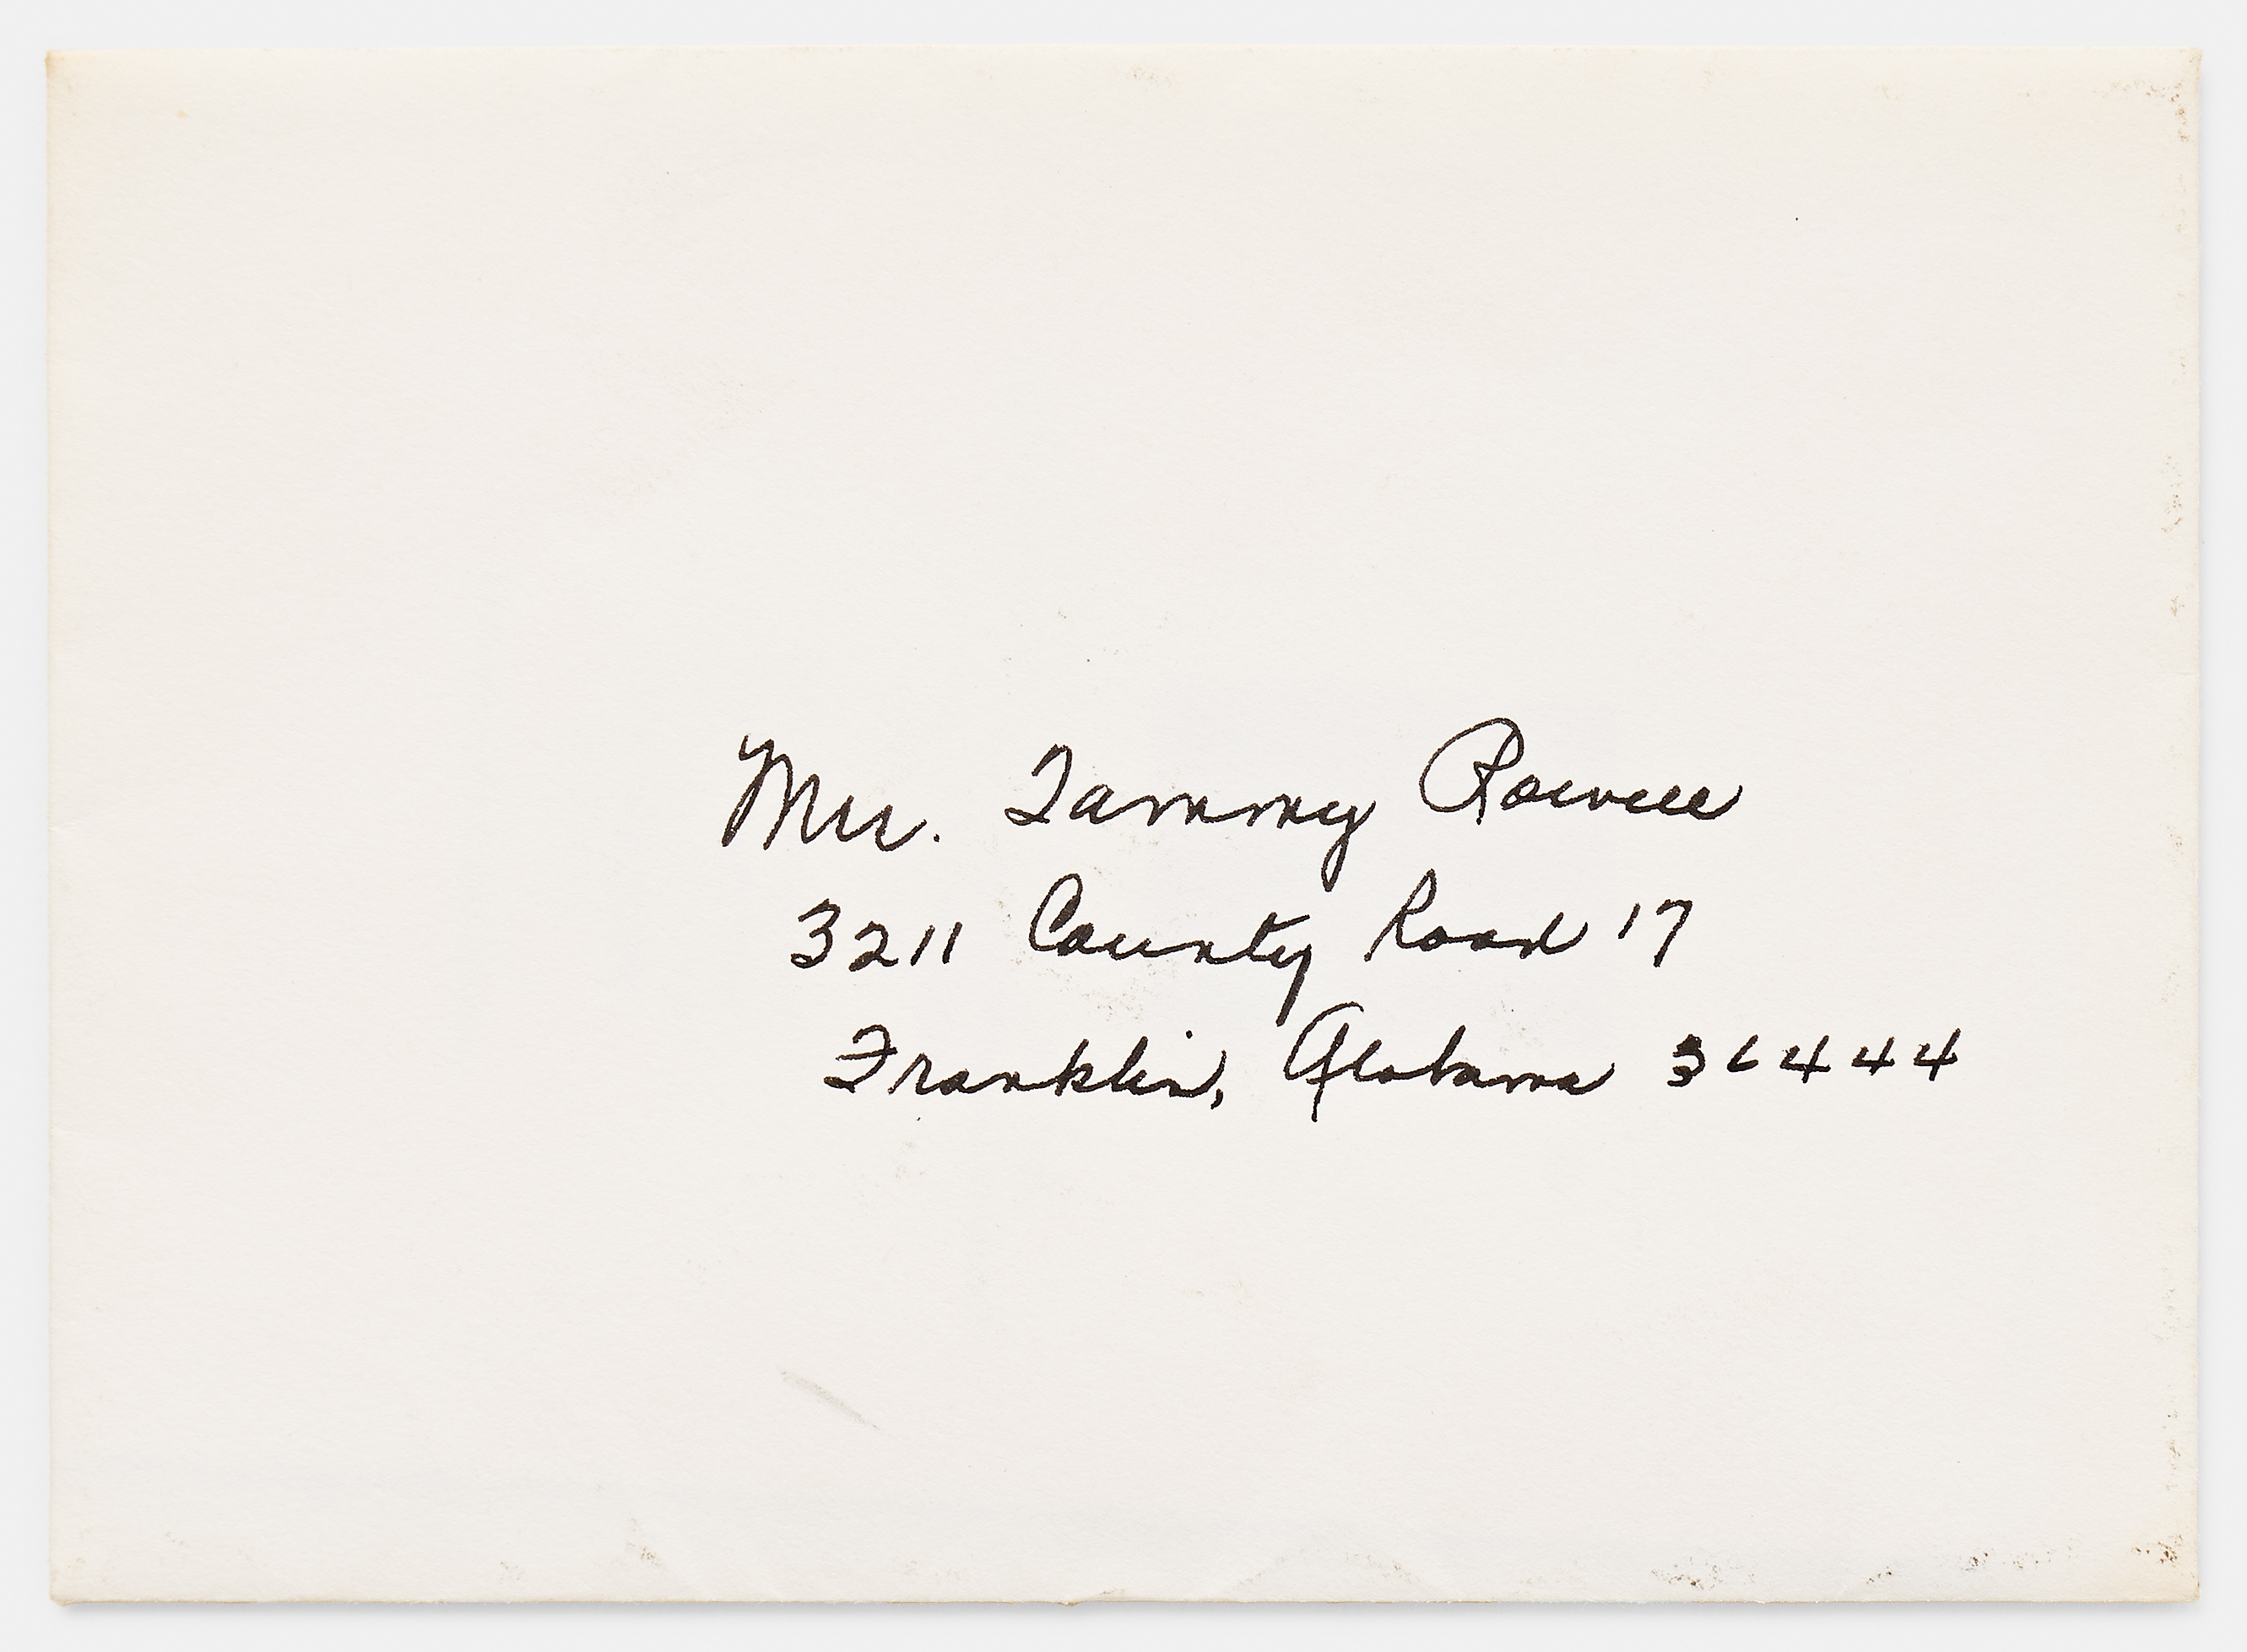 Mr. Tommy Rowell
3211 County Road 17
Franklin, Alabama 36444